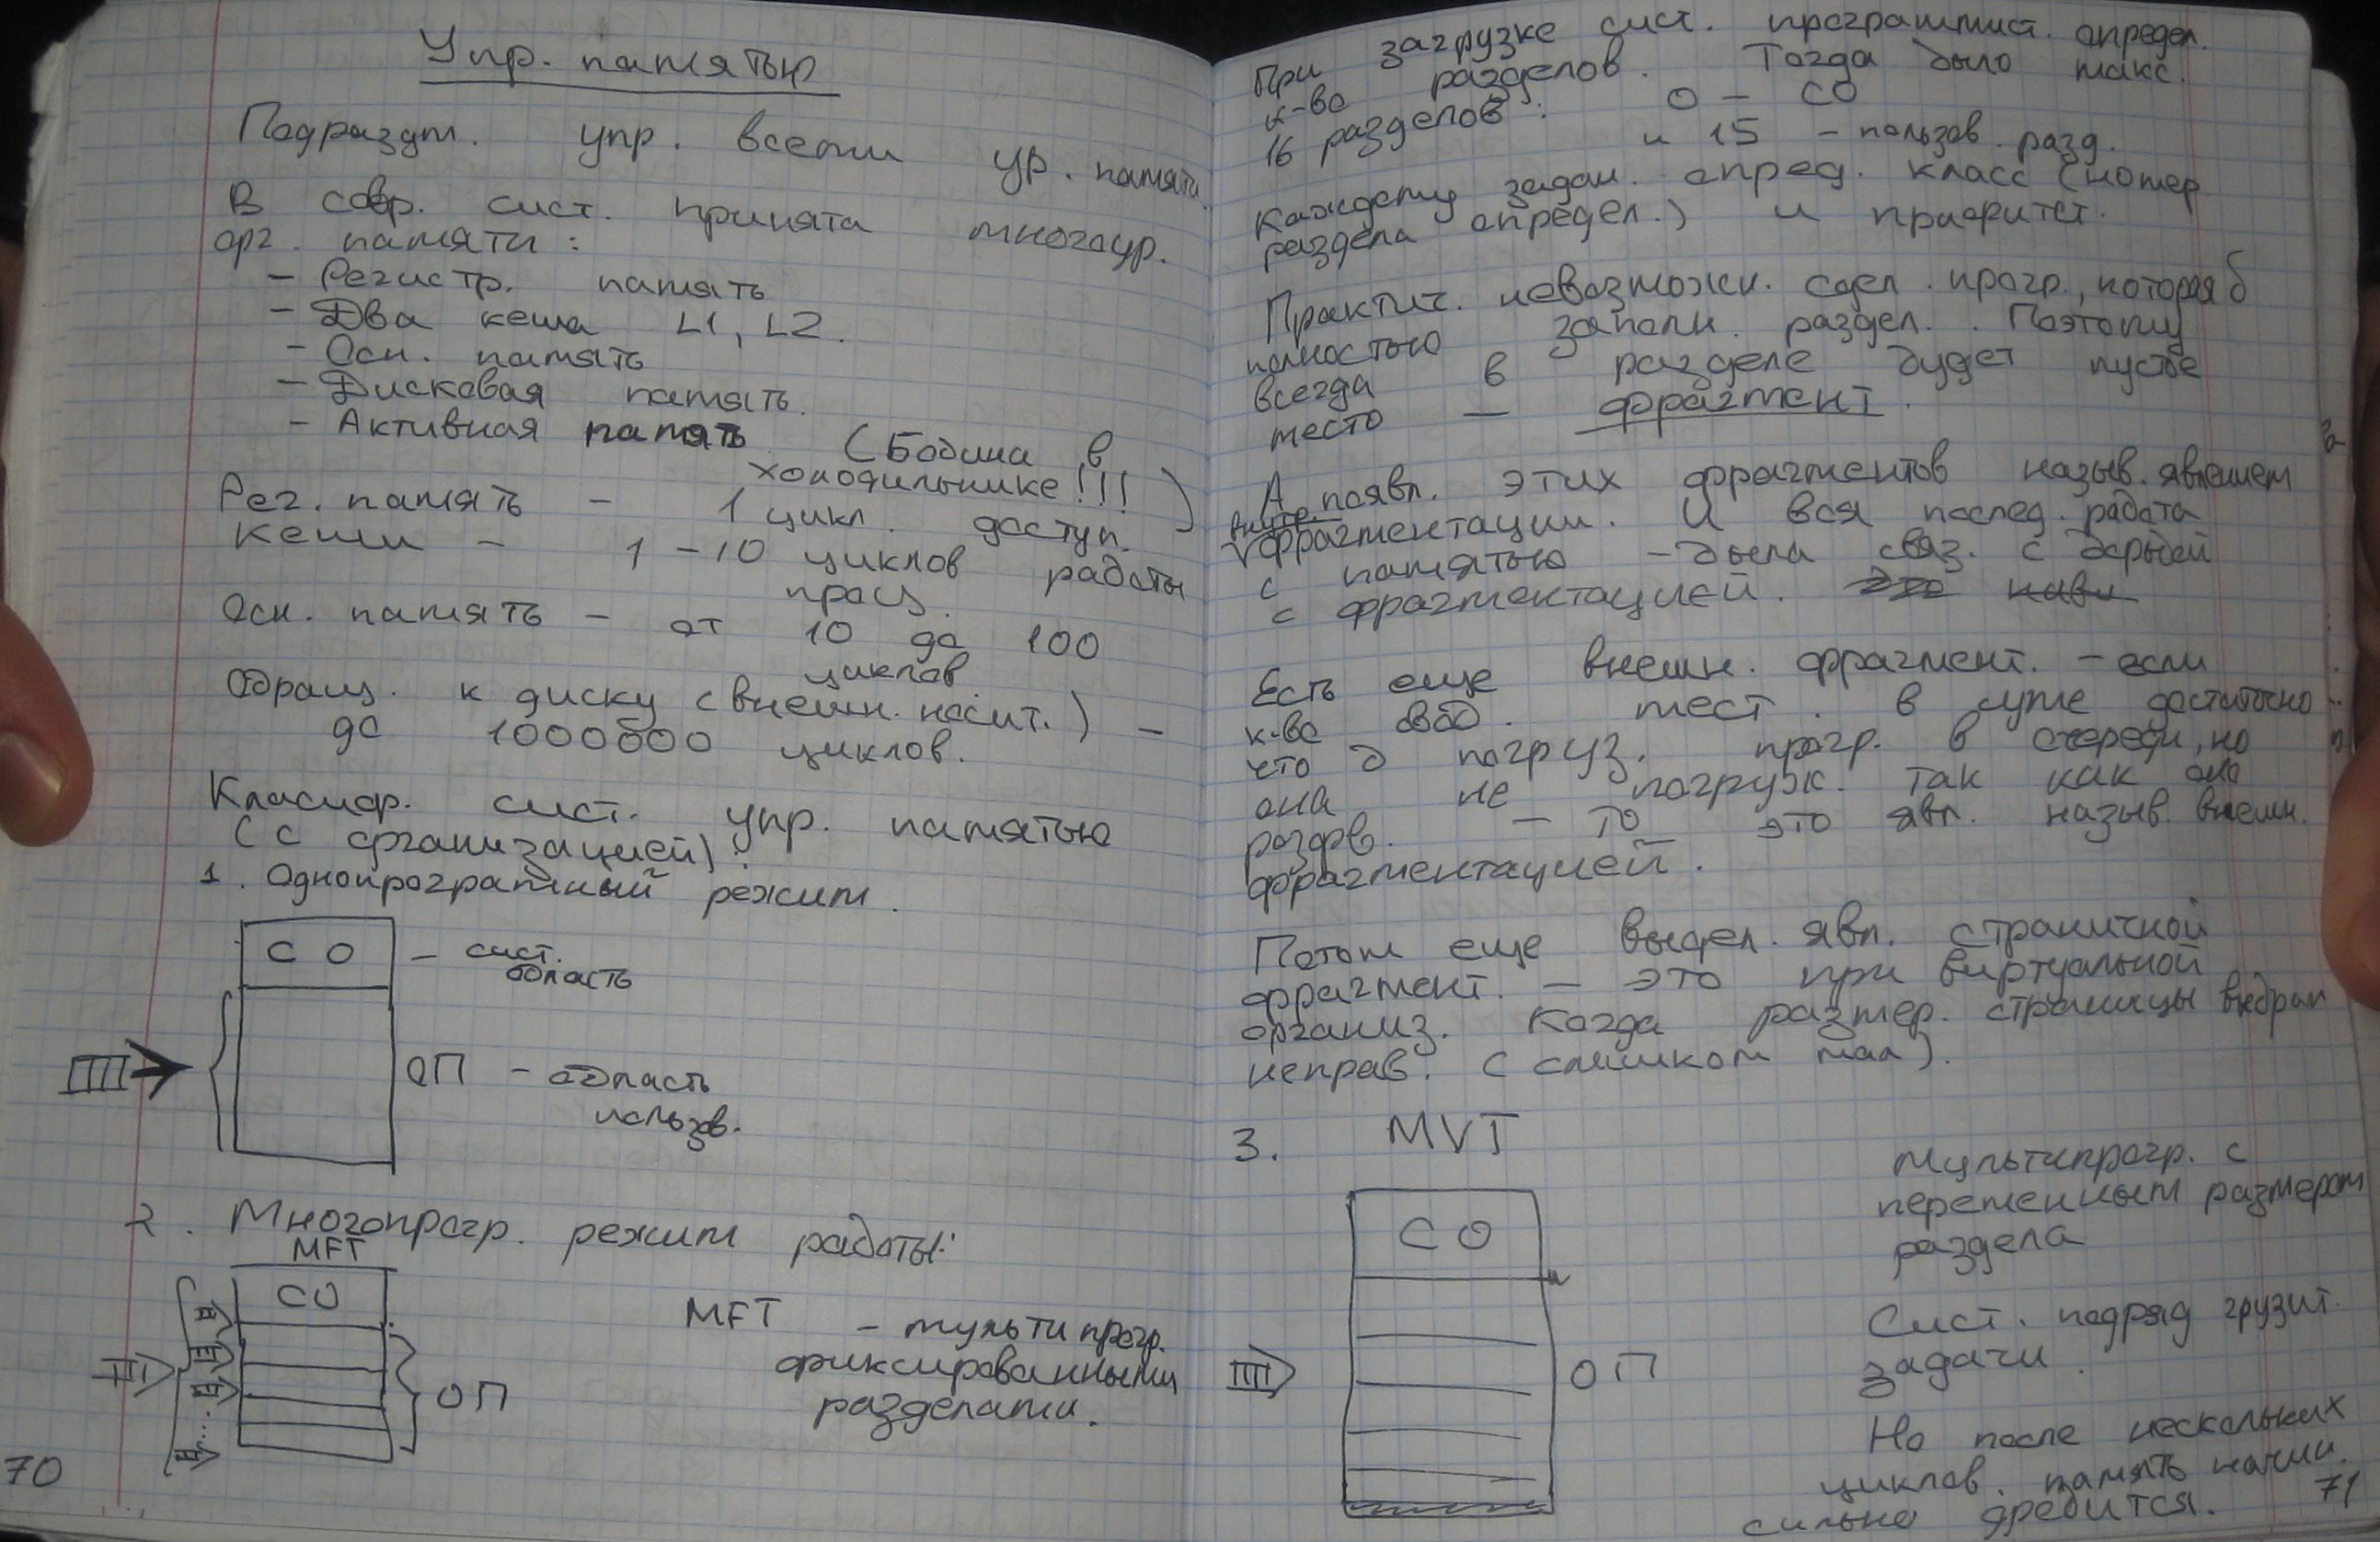 Упр. памятью
Подразум. упр. всеми ур. памяти.
В совр. сист. принята многоур.
орг. памяти:
- Регистр. память
- Два кеша L1, L2.
- Осн. память
- Дисковая память.
- Активная память (Бобина в
холодильнике!!!)
Рег. память - 1 цикл. доступ.
Кеши - 1-10 циклов работы
проц.
Осн. память - от 10 до 100
циклов
Обращ. к диску (внешн. носит.) -
до 1000000 циклов.
Класиф. сист. упр. памятью
(с организацией):
1. Однопрограмный режим.
СО - сист.
область
ОП - область
пользов.
2. Многопрогр. режим работы:
MFT
СО
MFT - мультипрогр.
фиксированными
разделами.
ОП
70
При загрузке сист. программист. определ.
к-во разделов. Тогда было макс.
16 разделов: 0 - СО
и 15 - пользов. разд.
Каждому задан. опред. класс (номер
раздела определ.) и приоритет.
Практич. невозможн. сдел. прогр., которая б
полностью заполн. раздел. Поэтому
всегда в разделе будет пустое
место - фрагмент.
А появл. этих фрагментов назыв. явлением
внутр. фрагментации. И вся послед. работа
с памятью - была связ. с борьбой
с фрагментацией.
Есть еще внешн. фрагмент. - если
к-во своб. мест. в сумме достаточно
что б погруз. прогр. в очереди, но
она не погруж. так как она
раздроб. - то это явл. назыв. внешн.
фрагментацией.
Потом еще выдел. явл. страничной
фрагмент. - это при виртуальной
организ. когда размер. страницы выбран
неправ. (слишком мал).
3. MVT
Мультипрогр. с
переменным размером
раздела
СО
Сист. подряд грузит.
задачи.
ОП
Но после нескольких
циклов. память начин.
сильно дробится.
71